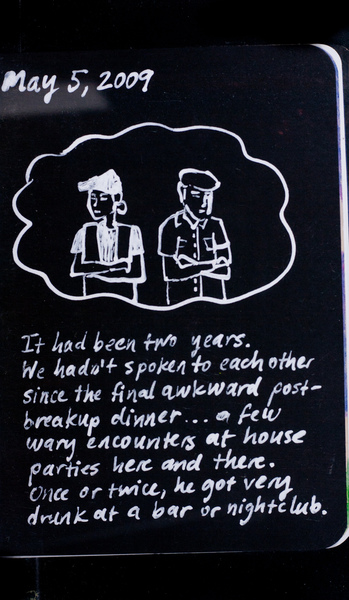 May 5, 2009
It had been two years.
We hadn't spoken to each other
since the final awkward post-
breakup dinner... a few
wary encounters at house
parties here and there.
Once or twice, he got very
drunk at a bar or nightclub.